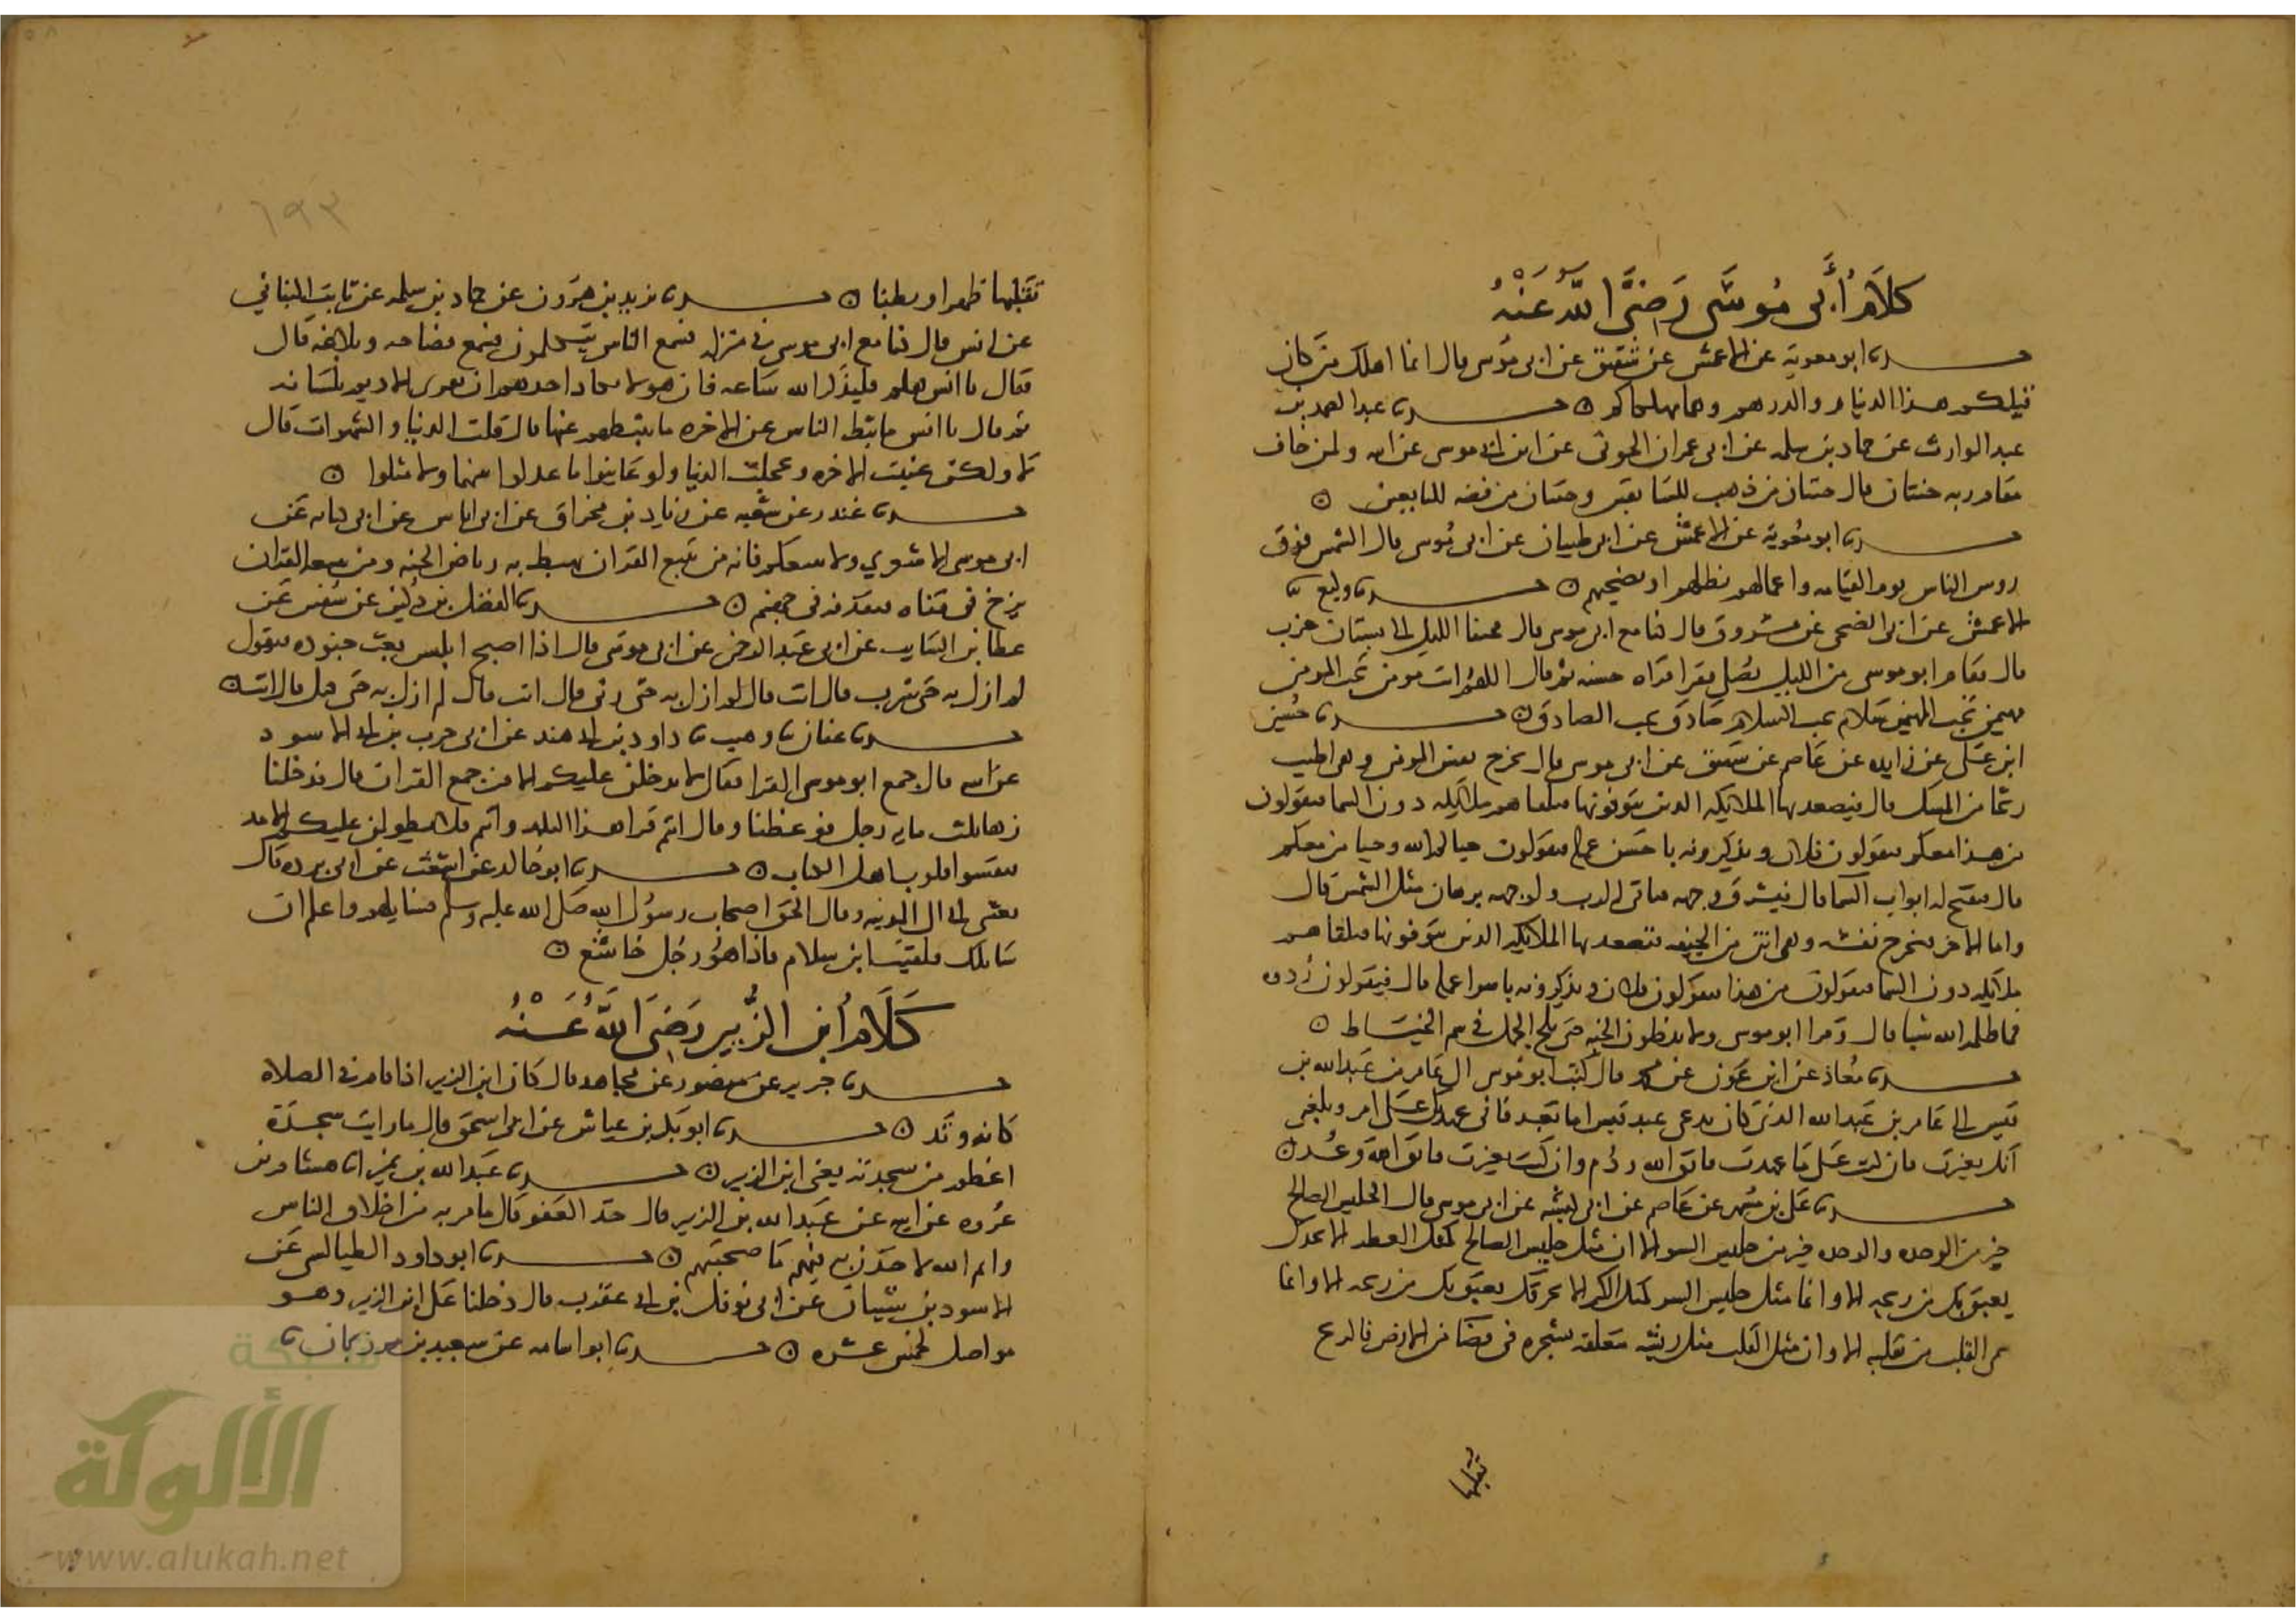 كلام أبي موسى رضي الله عنه
حدثنا ابو معوية عن الاعمش عن شقيق عن ابي موسى قال انما اهلك من كان
قبلكم هذا الدينار والدرهم وهما مهلكاكم ۞ حدثنا عبد الصمد بن
عبد الوارث عن حماد بن سلمه عن ابي عمران الجوني عن ابن ابي موسى عن ابيه ولمن خاف
مقام ربه جنتان قال جنتان من ذهب للسابقين وجنتان من فضه للتابعين ۞
حدثنا ابو معوية عن الاعمش عن ابي ظبيان عن ابي موسى قال الشمس فوق
روس الناس يوم القيامه واعمالهم تظلهم او تضحيهم ۞ حدثنا وكيع ثنا
الاعمش عن ابي الضحى عن مسروق قال كنا مع ابي موسى قال فجئنا الليل الى بستان خرب
قال فقام ابو موسى من الليل يصلي فقرا قراه حسنه ثم قال اللهم انت مومن تحب المومن
مهيمن تحب المهيمن سلام تحب السلام صادق تحب الصادق ۞ حدثنا حسين
ابن علي عن زايده عن عاصم عن شقيق عن ابي موسى قال تخرج نفس المومن وهي اطيب
ريحا من المسك قال فيصعد بها الملايكه الذين يتوفونها فتلقاهم ملايكه دون السما فيقولون
من هذا معكم فيقولون فلان ويذكرونه باحسن عمله فيقولون حياكم الله وحيا من معكم
قال فتفتح له ابواب السما قال فيشرق وجهه فياتي الرب ولوجهه برهان مثل الشمس قال
واما الاخر فتخرج نفسه وهي انتن من الجيفه فيصعد بها الملايكه الذين يتوفونها فتلقاهم
ملايكه دون السما فيقولون من هذا فيقولون فلان ويذكرونه باسوا عمله قال فيقولون ردوه
فما ظلمه الله شيا قال وقرا ابو موسى ولا يدخلون الجنه حتى يلج الجمل في سم الخياط ۞
حدثنا معاذ عن ابن عون عن محمد قال كتب ابو موسى الى عامر من عبد الله بن
قيس الى عامر بن عبد الله الذي كان يدعى عبد قيس اما بعد فاني عهدتك على امر وبلغني
انك تغيرت فان كنت على ما عهدت فاتق الله ودم وان كنت تغيرت فاتق الله وعد ۞
حدثنا علي بن مسهر عن عاصم عن ابي كبشه عن ابي موسى قال الجليس الصالح
خير من الوحده والوحده خير من جليس السو الا ان مثل جليس الصالح كمثل العطر الا يحذك
يعبق بك من ريحه الا وانما مثل جليس السو كمثل الكير الا يحرقك يعبق بك من ريحه الا وانما
سمي القلب من تقلبه الا وان مثل القلب مثل ريشه متعلقه بشجره في فضا من الارض فالريح
تقلبها
تقلبها ظهرا وبطنا ۞ حدثنا يزيد بن هرون عن حماد بن سلمه عن ثابت البناني
عن انس قال كنا مع ابي موسى في منزله فسمع الناس يتكلمون فسمع فصاحه وبلاغه قال
فقال يا انس هلم فليذكر الله ساعه فان هولا يكاد احدهم ان يفري الاديم بلسانه
ثم قال يا انس ما ثبط الناس عن الاخره ما يثبطهم عنها قال قلت الدنيا والشهوات قال
لا ولكن غيبت الاخره وعجلت الدنيا ولو عاينوا ما عدلوا بينهما ولا مثلوا ۞
حدثنا غندر عن شعبه عن زياد بن مخراق عن ابي اياس عن ابي كنانه عن
ابي موسى الاشعري ولا يتبعكم فانه من يتبع القران يهبط به رياض الجنه ومن يتبعه القران
يزخ في قفاه فيقذفه في جهنم ۞ حدثنا الفضل بن دكين عن سفين عن
عطا بن السايب عن ابي عبد الرحمن عن ابي موسى قال اذا اصبح ابليس بعث جنوده فيقول
لم ازل به حتى شرب قال انت قال لم ازل به حتى زنى قال انت قال لم ازل به حتى قتل قال انت ۞
حدثنا عفان ثنا وهيب ثنا داود بن ابي هند عن ابي حرب بن ابي الاسود
عن ابيه قال جمع ابو موسى القرا فقال لا يدخلن عليكم الا من جمع القران قال فدخلنا
زها ثلث مايه رجل فوعظنا وقال انتم قرا هذا البلد وانتم فلا يطولن عليكم الامد
فتقسوا قلوب اهل الكتاب ۞ حدثنا ابو خالد عن اشعث عن ابي برده قال
بعثني ابي الى المدينه وقال الحق اصحاب رسول الله صلى الله عليه وسلم فسايلهم واعلم اني
سايلك فلقيت ابن سلام فاذا هو رجل خاشع ۞
كلام ابن الزبير رضي الله عنه
حدثنا جرير عن منصور عن مجاهد قال كان ابن الزبير اذا قام في الصلاه
كانه وتد ۞ حدثنا ابو بكر بن عياش عن ابي اسحق قال ما رايت سجدة
اعظم من سجدته يعني ابن الزبير ۞ حدثنا عبد الله بن نمير ثنا هشام بن
عروه عن ابيه عن عبد الله بن الزبير قال خذ العفو قال ما امر به من اخلاق الناس
وايم الله لاخذن به فيهم ما صحبتهم ۞ حدثنا ابو داود الطيالسي عن
الاسود بن شيبان عن ابي نوفل بن ابي عقرب قال دخلنا على ابن الزبير وهو
مواصل لخمس عشره ۞ حدثنا ابو اسامه عن سعيد بن مرزبان ثنا
٦٩٣
شبكة
الألوكة
www.alukah.net